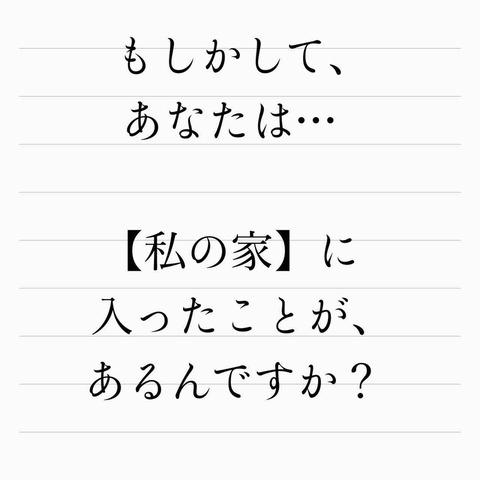 もしかして、
あなたは…
【私の家】に
入ったことが、
あるんですか？